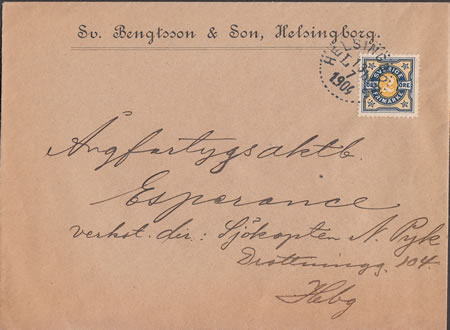 Sv. Bengtsson & Son, Helsingborg.
HELSINGBORG
1904
SVERIGE
2
ÖRE
FRIMÄRKE
Ångfartygsaktb.
Esperance
verkst. dir.: Sjökapten N. Pyk
Drottningg. 104.
Hbg